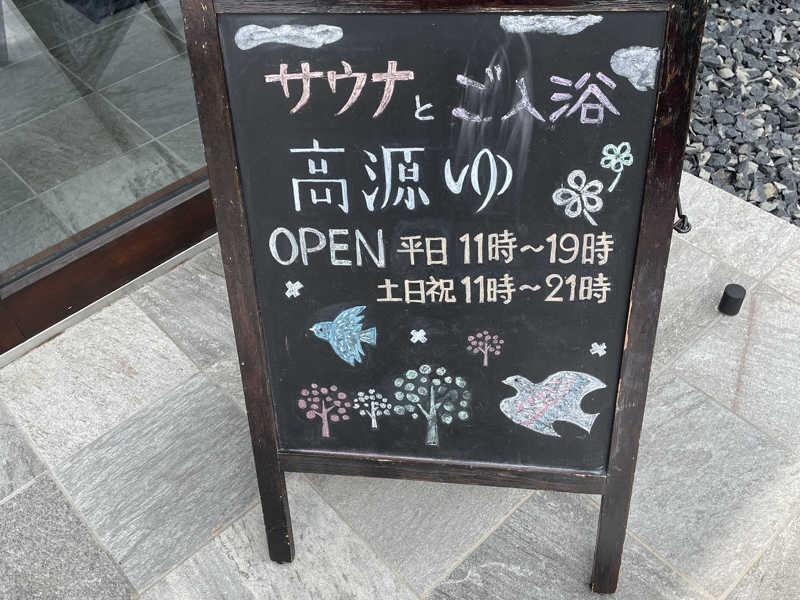 サウナとご入浴
高源ゆ
OPEN 平日 11時～19時
土日祝 11時～21時